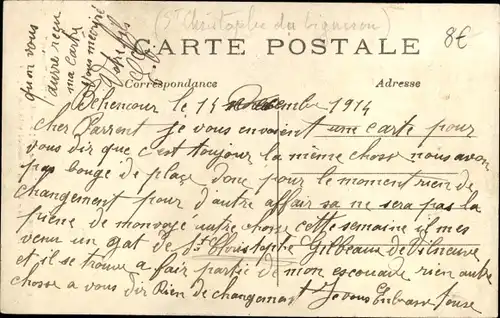 (St Christophe du Ligneron)
8€
CARTE POSTALE
Correspondance
Adresse
qu'on vous
aurre reçu
ma carte
vous
Votre fils
Behencour le 15 Novembre 1914
cher Parront je vous envoient une carte pour
vous dir que c'est toujour la même chosse nous avon
pas bougé de plaçe donc pour le moment rien de
changement pour d'autre affair sa ne sera pas la
piene de monvoyé autre chosse cette semaine il mes
venu un gat de St Christophe Gilbeaux de Vilneuve
et il se trouve a fair partie de mon escouade rien autre
chosse a vous dir Rien de changemant Je vous Enbrasse tousse